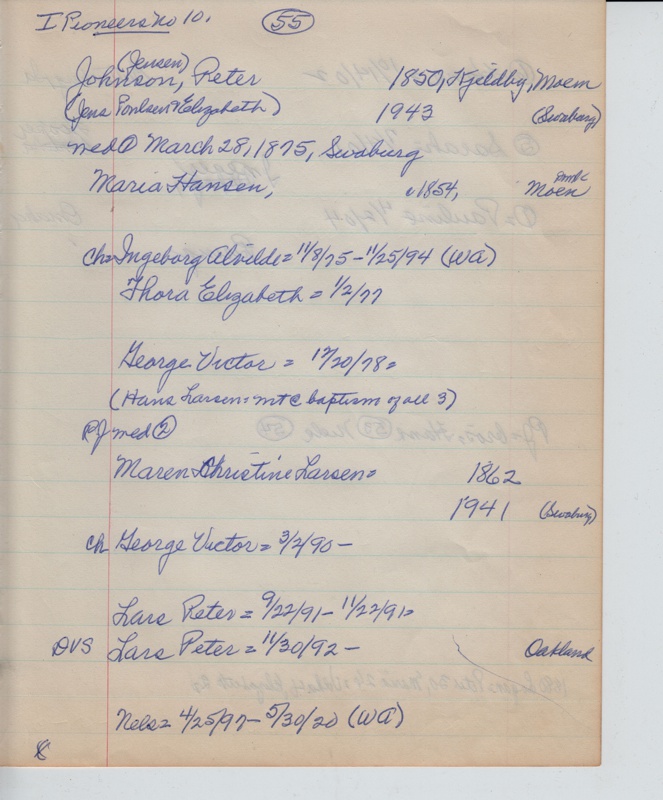 I Pioneers No 10. 55
(Jensen)
Johnson, Peter 1850, Kjeldby, Moem
(Jens Poulsen & Elizabeth) 1943 (Swaburg)
med ① March 28, 1875, Swaburg
Maria Hansen, c1854, Moen
ch = Ingeborg Alvilde = 11/8/75 - 11/25/94 (WA)
Thora Elizabeth = 1/2/77
George Victor = 12/20/78 =
(Hans Larsen = mt c baptism of all 3)
PJ med ②
Maren Christine Larsen = 1862
1941 (Swaburg)
ch George Victor = 3/2/90 -
Lars Peter = 9/22/91 - 11/22/91 =
DVS Lars Peter = 11/30/92 - Oakland
Nels = 4/25/97 - 5/30/20 (WA)
8